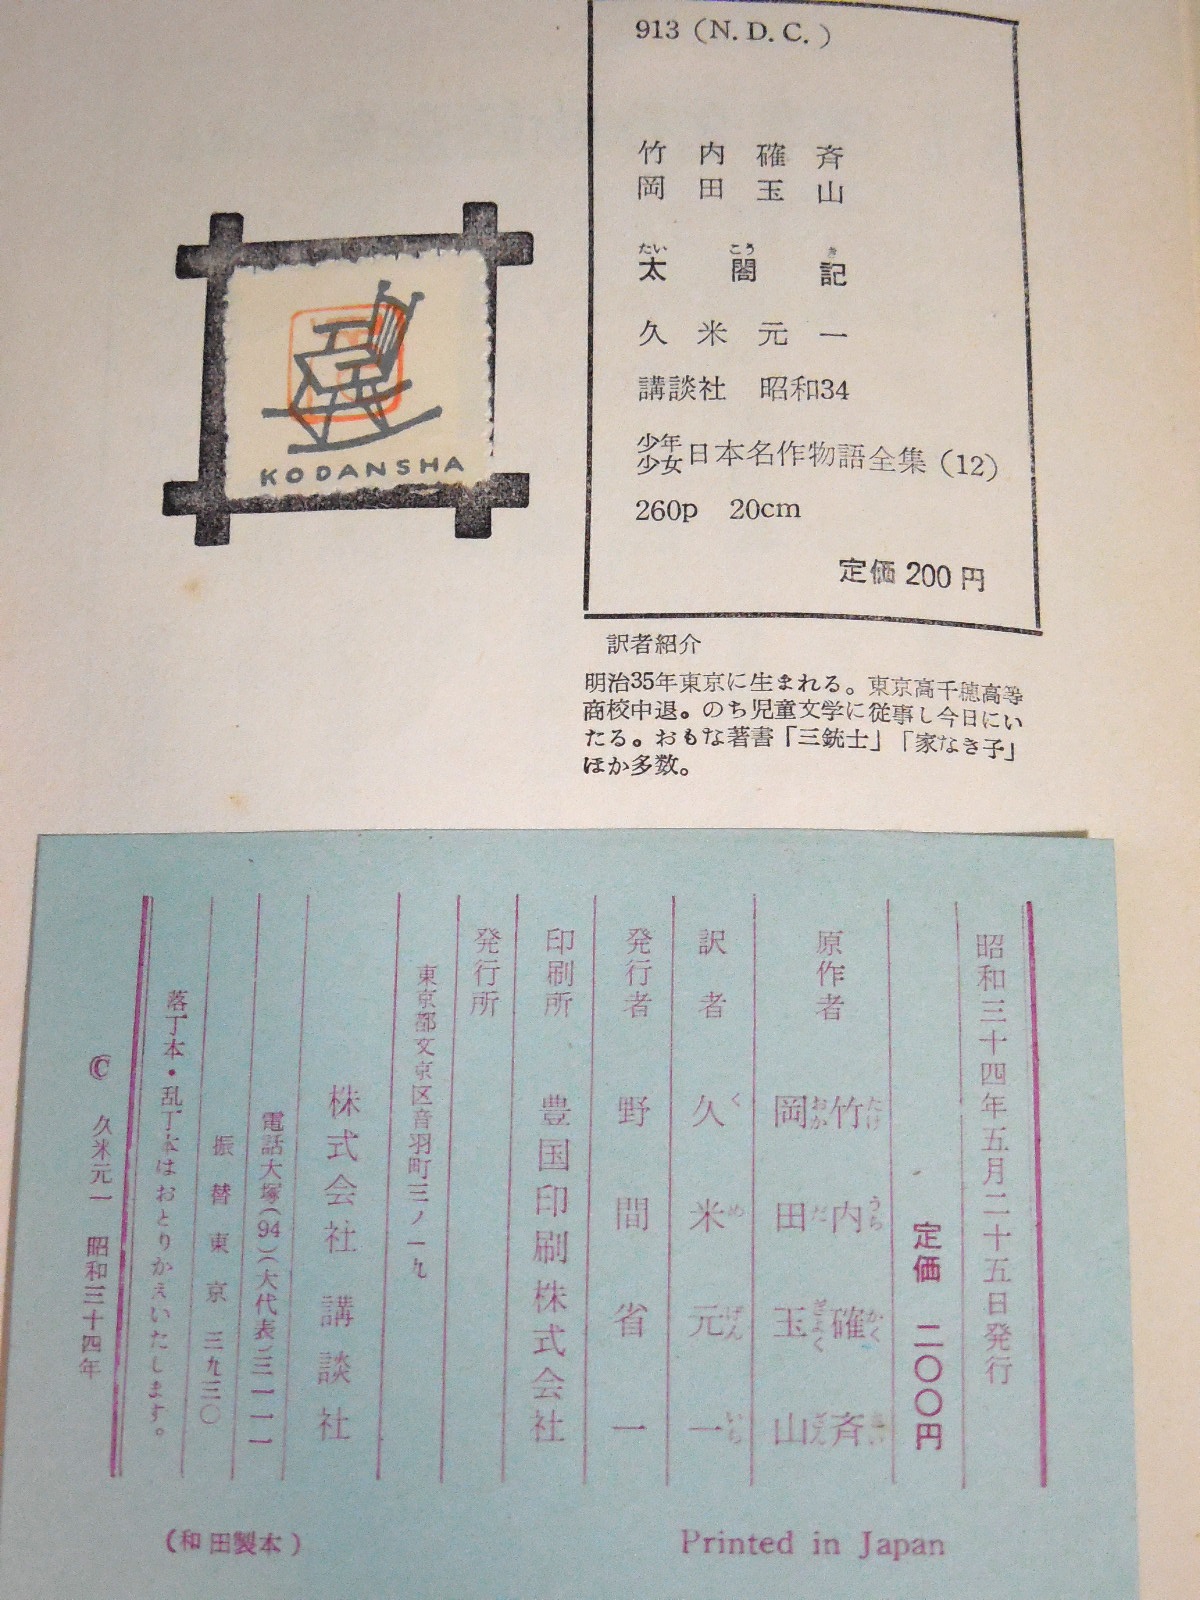 913 (N.D.C.)
竹内確斉
岡田玉山
たい こう き
太閤記
久米元一
講談社 昭和34
少年少女日本名作物語全集 (12)
260p 20cm
定価 200円
KODANSHA
訳者紹介
明治35年東京に生まれる。東京高千穂高等
商校中退。のち児童文学に従事し今日にい
たる。おもな著書「三銃士」「家なき子」
ほか多数。
昭和三十四年五月二十五日発行
定価 二〇〇円
原作者 竹内確斉
たけ うち かく さい
岡田玉山
おか だ ぎょく ざん
訳者 久米元一
く め げん いち
発行者 野間省一
印刷所 豊国印刷株式会社
発行所
東京都文京区音羽町三ノ一九
株式会社 講談社
電話大塚(94)(大代表)三一一一
振替東京 三九三〇
落丁本・乱丁本はおとりかえいたします。
© 久米元一 昭和三十四年
(和田製本)
Printed in Japan